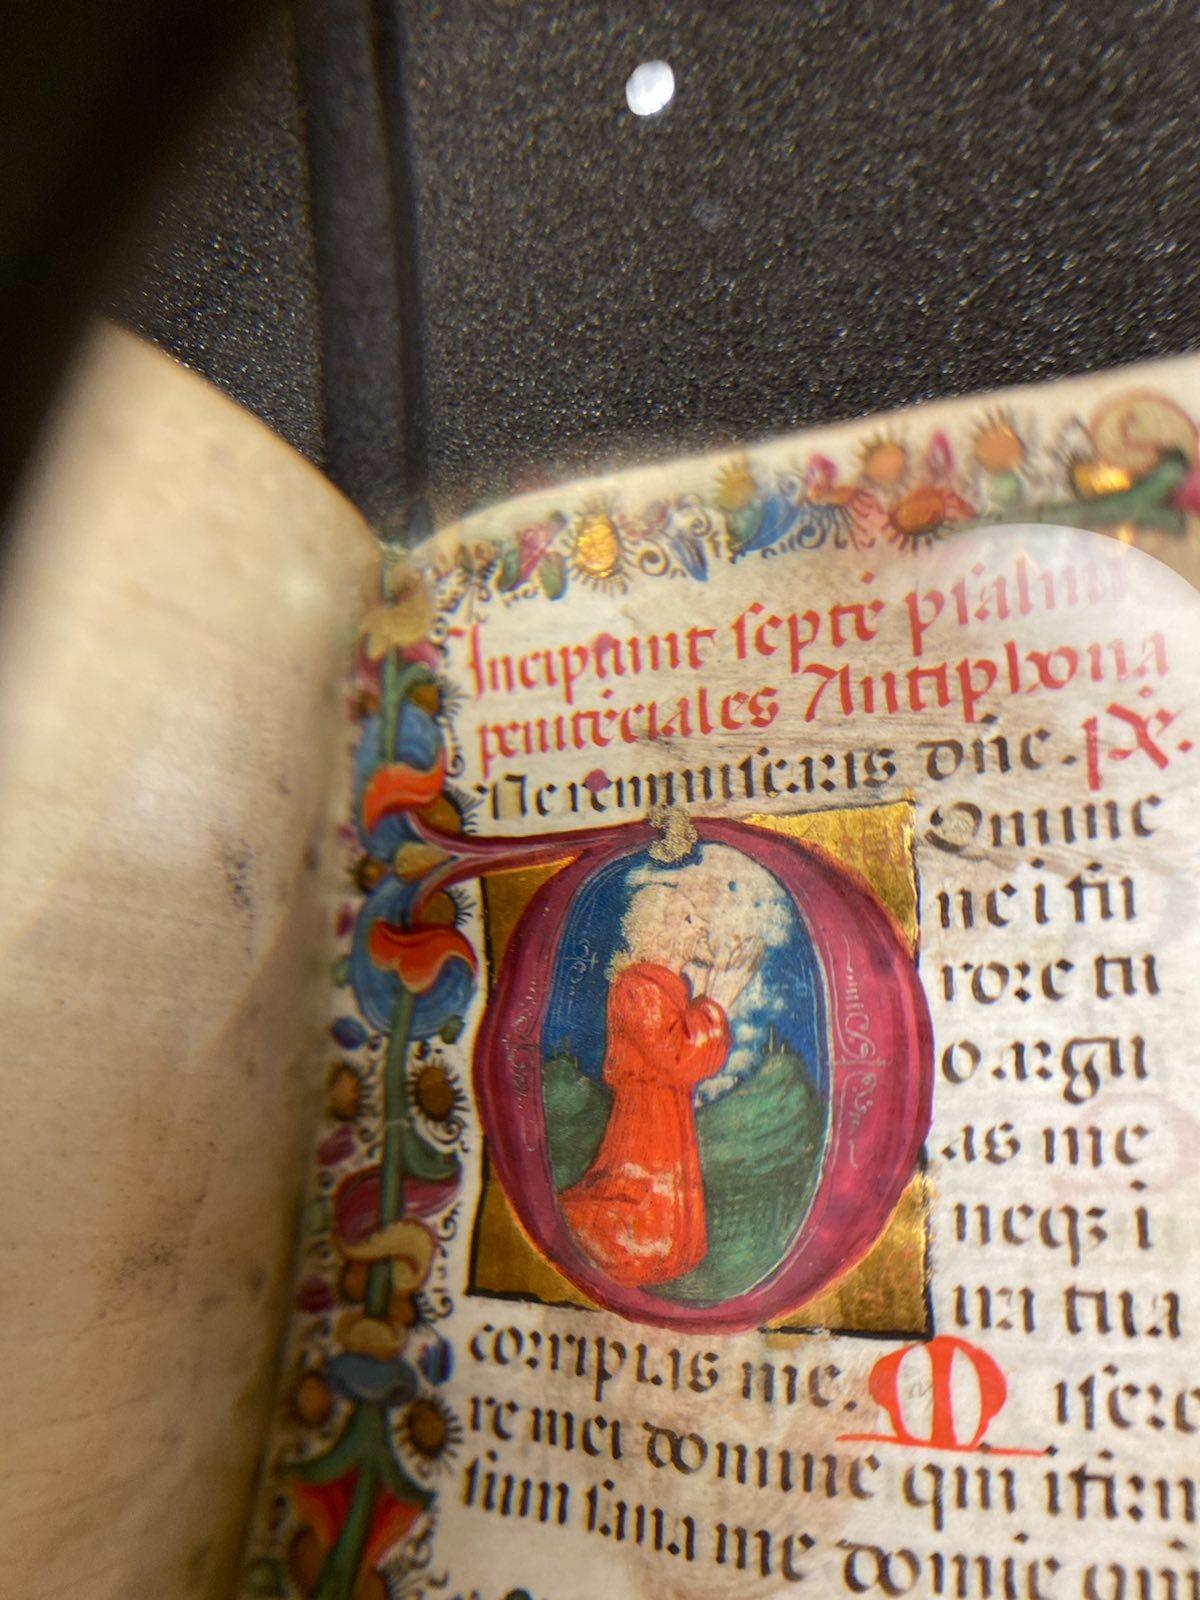 Incipiunt septē psalmi
penitēciales Antiphona
Ne reminiscaris dn̄e. ps̄.
Domine
ne i fu
rore tu
o argu
as me
neqꝫ i
ira tua
corripias me. Misere
re mei domine qm̄ ifirm
sum sana me domie qm̄